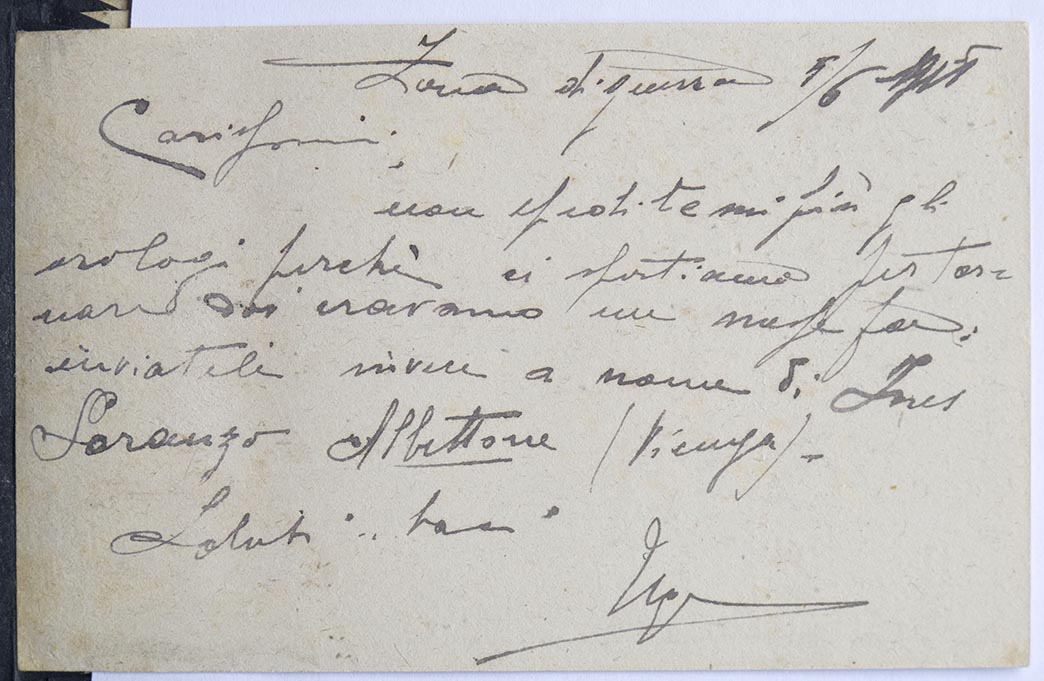 Zona di guerra 5/6 1915
Carissimi,
non speditemi più gli
orologi perchè ci spostiamo per tor=
nare ove eravamo un mese fa:
inviateli invece a nome di Ines
Soranzo Albettone (Vicenza) -
Saluti .. baci
Ugo